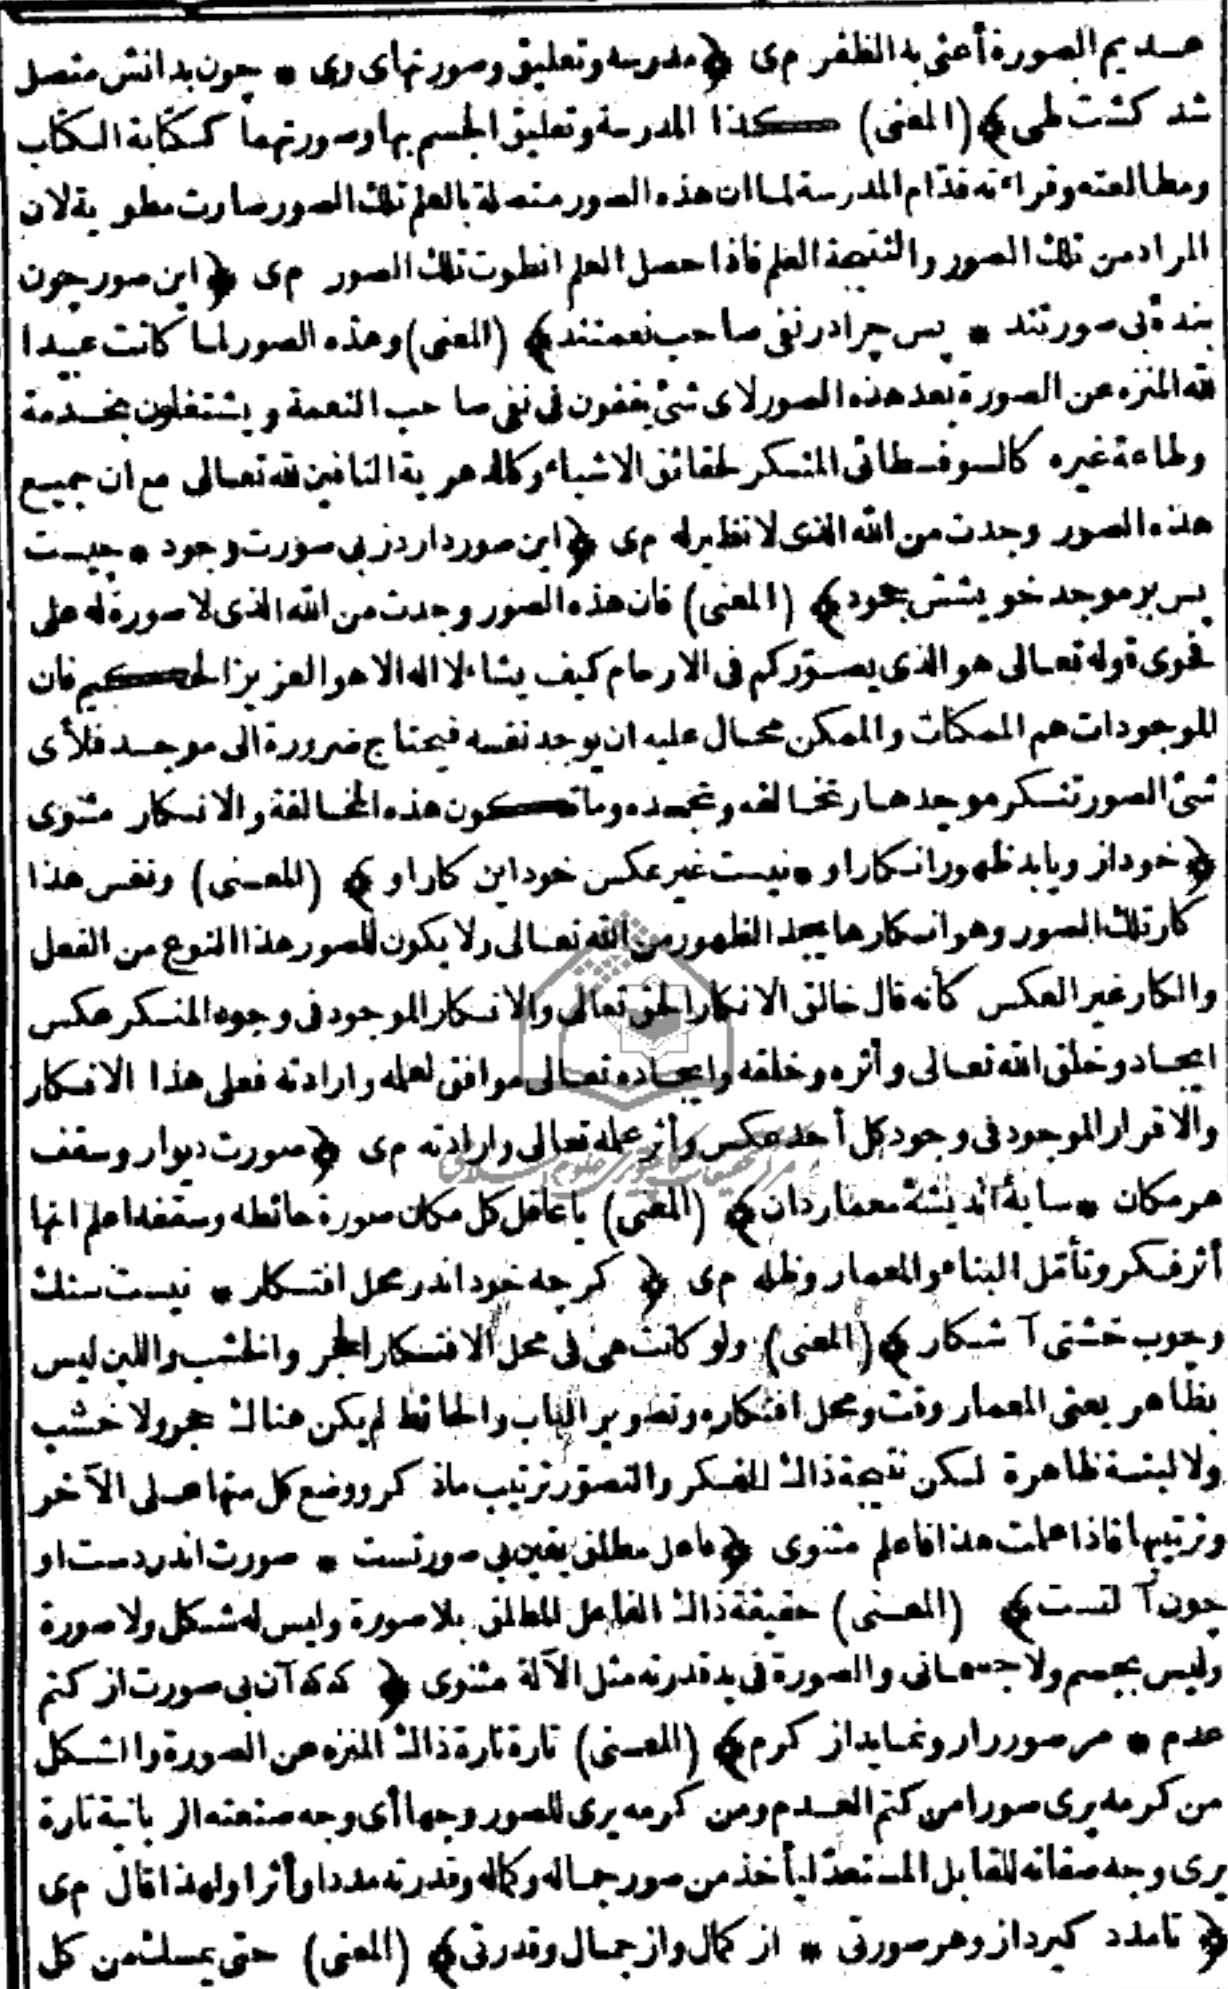 عديم الصورة أعنى به الظفر مى ﴿ مدرسه وتعليق وصورتهاى وى * چون بدانش متصل
شد كشت طى ﴾ (المعنى) كذا المدرسة وتعليق الجسم بها وصورتهما ككتابة الكتاب
ومطالعته وقراءته قدّام المدرسة لما ان هذه الصور متصلة بالعلم تلك الصور صارت مطوية لان
المراد من تلك الصور والنتيجة العلم فاذا حصل العلم انطوت تلك الصور مى ﴿ اين صور چون
بندهٔ بى صورتند * پس چرا در نفى صاحب نعمتند ﴾ (المعنى) وهذه الصور لما كانت عبيدا
لله المنزه عن الصورة بعد هذه الصور لاى شئ يقفون فى نفى صاحب النعمة ويشتغلون بخدمة
وطاعة غيره كالسوفسطائى المنكر لحقائق الاشياء وكالدهرية النافين لله تعالى مع ان جميع
هذه الصور وجدت من الله الذى لا نظير له مى ﴿ اين صور دارد ز بى صورت وجود * چيست
پس بر موجد خويشش جحود ﴾ (المعنى) فان هذه الصور وجدت من الله الذى لا صورة له على
فحوى قوله تعالى هو الذى يصوّركم فى الارحام كيف يشاء لا اله الا هو العزيز الحكيم فان
الموجودات هم الممكنات والممكن محال عليه ان يوجد نفسه فيحتاج ضرورة الى موجد فلأى
شئ الصور تنكر موجدها وتخالفه وتجحده وما تكون هذه المخالفة والانكار مثنوى
﴿ خود از و يابد ظهور انكار او * نيست غير عكس خود اين كار او ﴾ (المعنى) ونفس هذا
كار تلك الصور وهو انكارها يجد الظهور من الله تعالى ولا يكون للصور هذا النوع من الفعل
والكار غير العكس كأنه قال خالق الانكار الحق تعالى والانكار الموجود فى وجود المنكر عكس
ايجاد وخلق الله تعالى وأثره وخلقه وايجاده تعالى موافق لعلمه وارادته فعلى هذا الانكار
والاقرار الموجود فى وجود كل أحد عكس وأثر علمه تعالى وارادته مى ﴿ صورت ديوار وسقف
هر مكان * سايهٔ انديشهٔ معمار دان ﴾ (المعنى) يا عاقل كل مكان صورة حائطه وسقفه اعلم انها
أثر فكر وتأمّل البناء والمعمار وظله مى ﴿ كرچه خود اندر محل افتكار * نيست سنك
وچوب خشتى آشكار ﴾ (المعنى) ولو كانت هى فى محل الافتكار الحجر والخشب واللبن ليس
بظاهر يعنى المعمار وقت ومحل افتكاره وتصوير الباب والحائط لم يكن هناك حجر ولا خشب
ولا لبنة ظاهرة لكن نتيجة ذاك الفكر والتصوّر ترتيب ما ذكر ووضع كل منها على الآخر
وترتيبها فاذا علمت هذا فاعلم مثنوى ﴿ فاعل مطلق يقين بى صورتست * صورت اندر دست او
چون آلتست ﴾ (المعنى) حقيقة ذاك الفاعل المطلق بلا صورة وليس له شكل ولا صورة
وليس بجسم ولا جسمانى والصورة فى يد قدرته مثل الآلة مثنوى ﴿ كه كه آن بى صورت از كتم
عدم * مر صور را رو نمايد از كرم ﴾ (المعنى) تارة تارة ذاك المنزه عن الصورة والشكل
من كرمه يرى صورا من كتم العدم ومن كرمه يرى للصور وجها أى وجه صنعته الربانية تارة
يرى وجه صفاته للقابل المستعدّ ليأخذ من صور جماله وكماله وقدرته مددا وأثرا ولهذا قال مى
﴿ تا مدد كيرد از و هر صورتى * از كمال و از جمال و قدرتى ﴾ (المعنى) حتى يمسك من كل